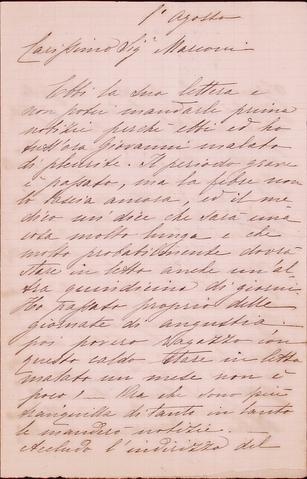 1° Agosto
Carissimo Sigr Marconi
Ebbi la sua lettera e
non potei mandarle prima
notizie perchè ebbi ed ho
tutt'ora Giovanni malato
di pleurite. Il periodo grave
è passato, ma la febre non
lo lascia ancora, ed il me
dico mi dice che sarà una
cosa molto lunga e che
molto probabilmente dovrà
stare in letto anche un'al
tra quindicina di giorni
Ho passato proprio delle
giornate di angustia
poi povero ragazzo con
questo caldo stare in letto
malato un mese non è
poco! — Ora che sono più
tranquilla di tanto in tanto
le manderò notizie. —
Accludo l'indirizzo del